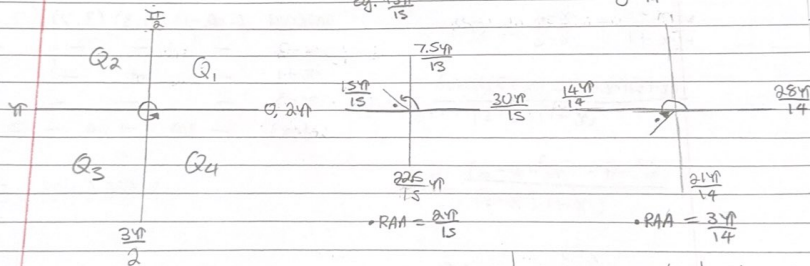 π/2
Q2
Q1
π
0, 2π
Q3
Q4
3π/2
7.5π/13
15π/15
30π/15
22.5/15 π
•RAA = 2π/15
14π/14
28π/14
21π/14
•RAA = 3π/14